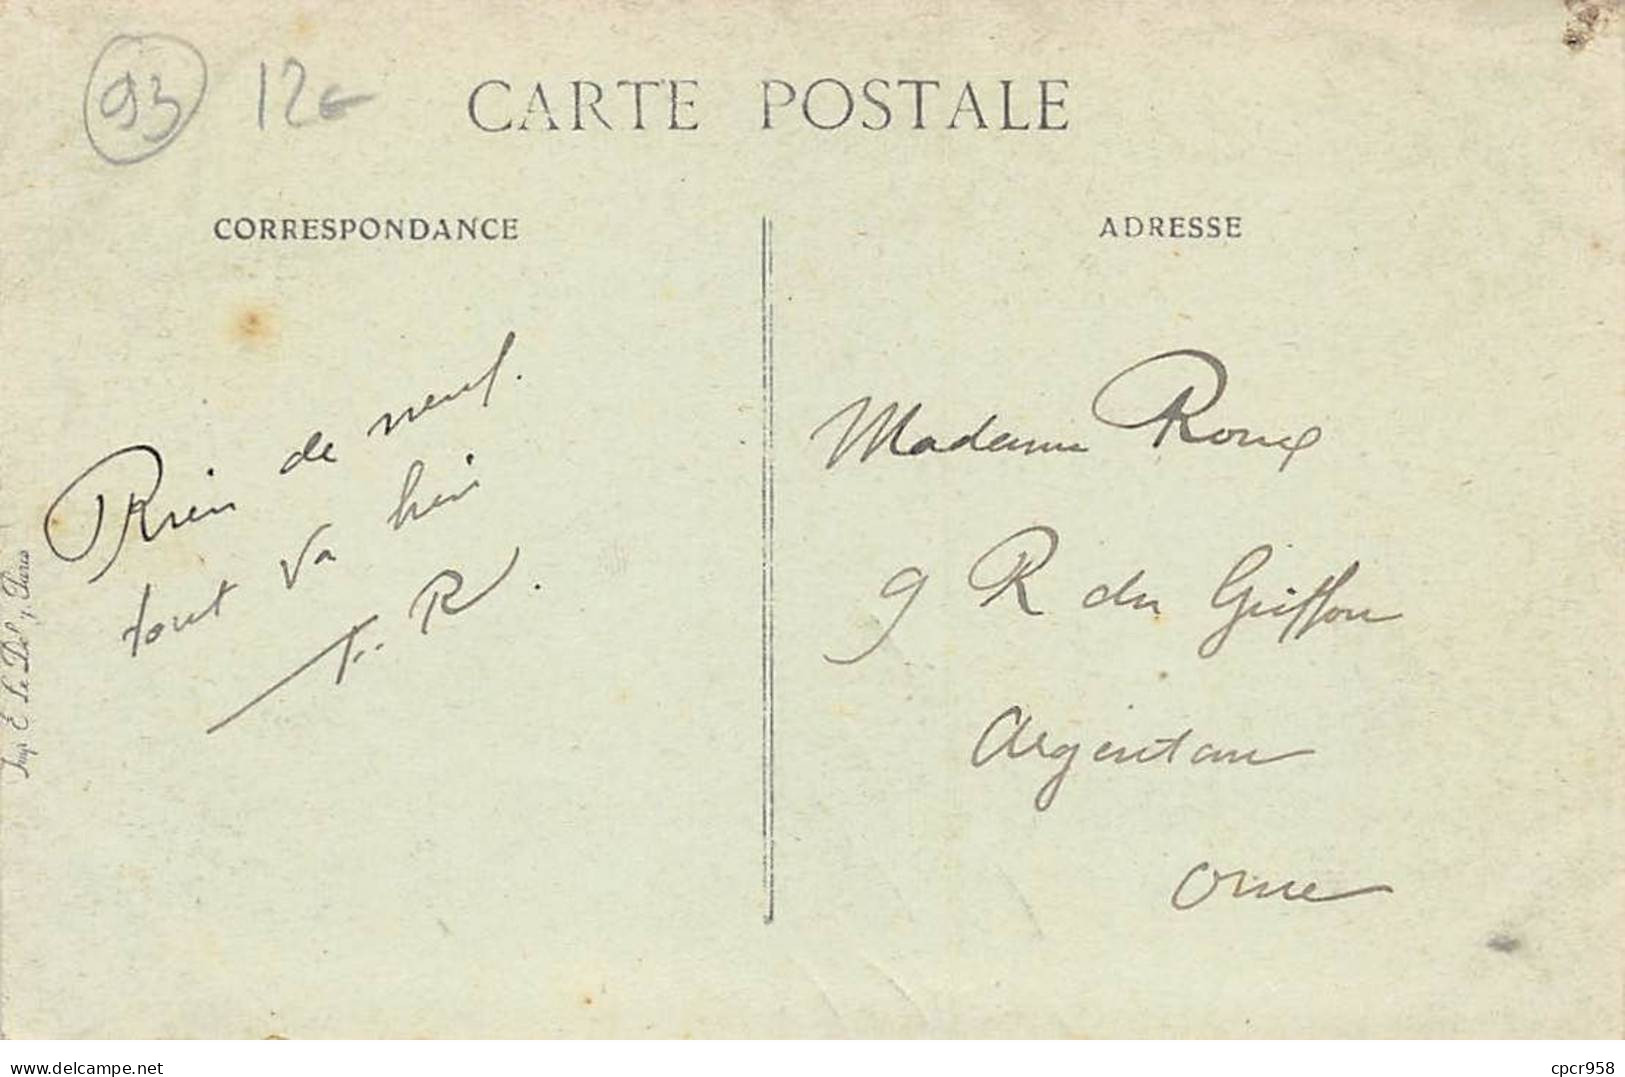 93 12€
CARTE POSTALE
CORRESPONDANCE
ADRESSE
Rien de neuf.
tout va bien
F. R.
Madame Roux
9 R du Griffon
Argentan
Orne
Imp. E. Le Deley, Paris
delcampe.net
cpcr958